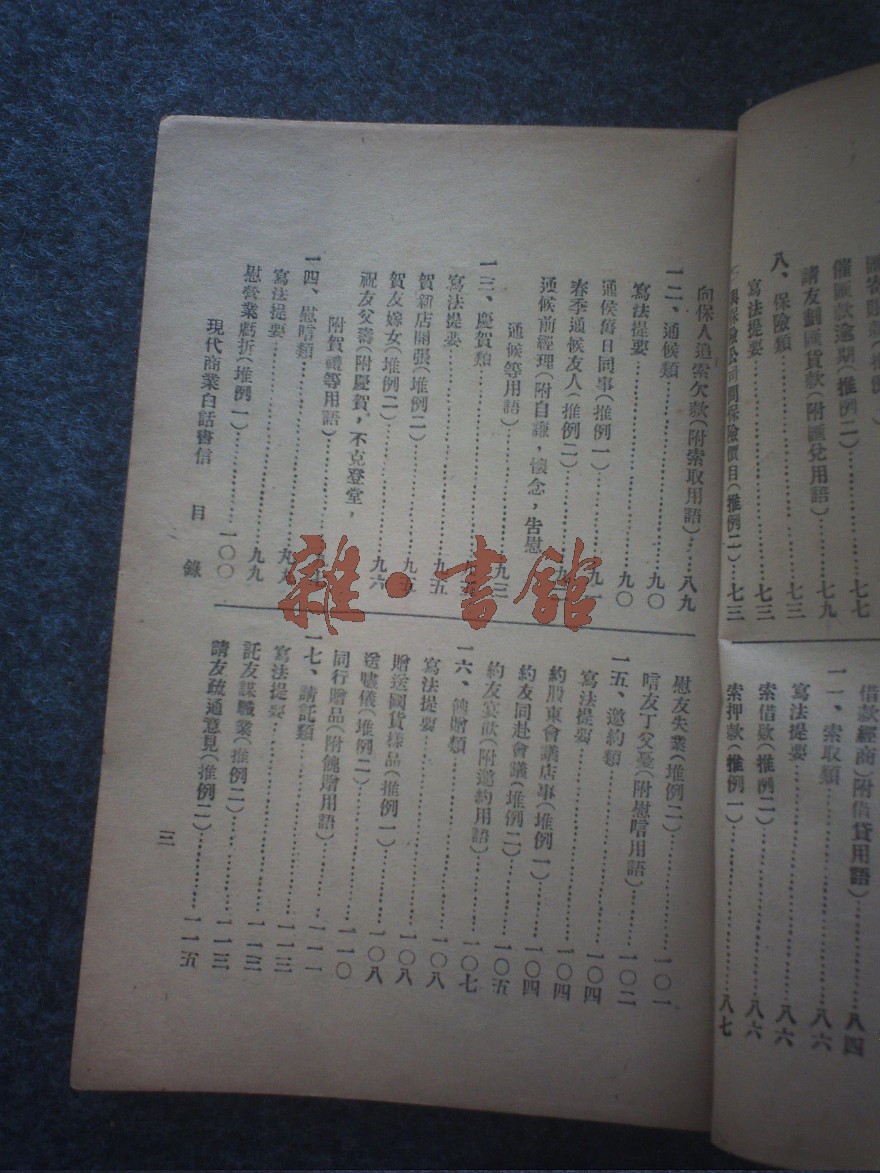 催匯款逾期(推例二)……七七
請友劃匯貨款(附匯兌用語)……七九
八、保險類……七三
寫法提要……七三
與保險公司問保險價目(推例二)……七三
借款經商(附借貸用語)……八四
一一、索取類……八六
寫法提要……八六
索借款(推例二)……八六
索押款(推例一)……八七
向保人追索欠款(附索取用語)……八九
一二、通候類……九〇
寫法提要……九〇
通侯舊日同事(推例一)……九一
春季通候友人(推例二)……
通候前經理(附自謙,懷念,告慰
通候等用語)……九三
一三、慶賀類……
寫法提要……九五
賀新店開張(堆例二)……九五
賀友嫁女(堆例二)……九六
祝友父壽(附慶賀,不克登堂,
附賀禮等用語)……
一四、慰唁類……九九
寫法提要……九九
慰營業虧折(堆例一)……一〇〇
現代商業白話書信 目錄
慰友失業(堆例二)……一〇一
唁友丁父憂(附慰唁用語)……一〇二
一五、邀約類……一〇四
寫法提要……一〇四
約股東會議店事(堆例一)……一〇四
約友同赴會議(堆例二)……一〇五
約友宴飲(附邀約用語)……一〇七
一六、餽贈類……一〇八
寫法提要……一〇八
贈送國貨樣品(推例一)……一〇八
送嘯儀(堆例二)……一一〇
同行贈品(附餽贈用語)……一一一
一七、請託類……一一三
寫法提要……一一三
託友謀職業(推例二)……一一三
請友疏通意見(推例二)……一一五
三
雜·書館